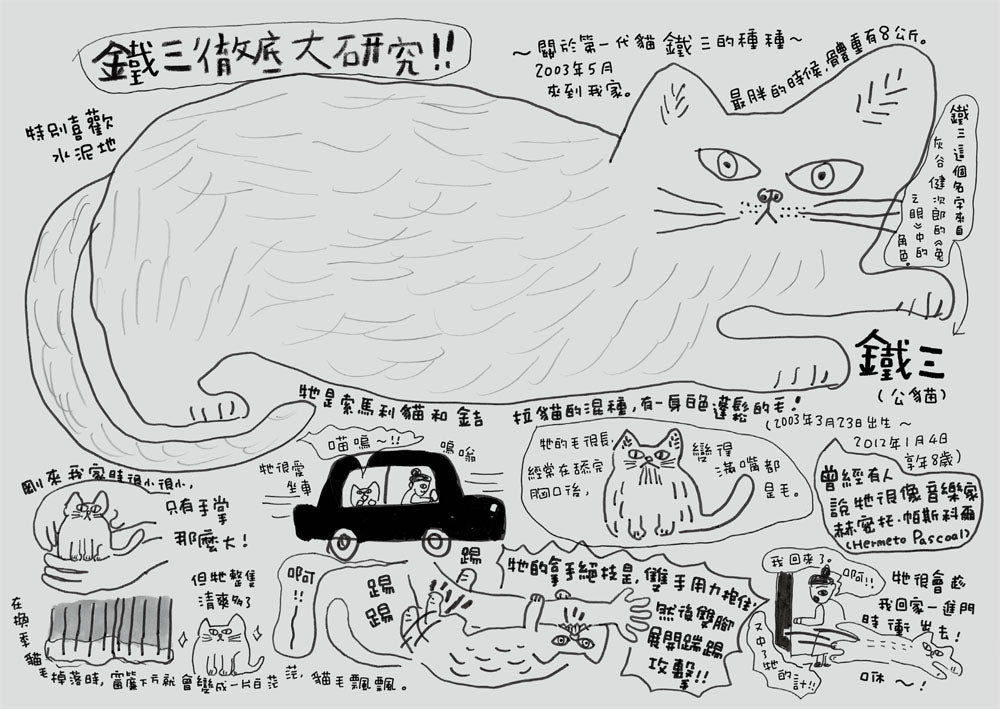 鐵三徹底大研究!!
～關於第一代貓 鐵三的種種～
2003年5月
來到我家。
最胖的時候,體重有8公斤。
特別喜歡
水泥地
鐵三這個名字來自
灰谷健次郎的《兔
之眼》中的
角色。
鐵三
(公貓)
(2003年3月23日出生～
2012年1月4日
享年8歲)
牠是索馬利貓和金吉拉貓的混種,有一身白色蓬鬆的毛!
曾經有人
說牠很像音樂家
赫密托·帕斯科爾
(Hermeto Pascoal)
剛來我家時很小很小,
只有手掌
那麼大!
喵嗚~!!
嗚嗡
牠很愛
坐車
牠的毛很長,
經常在舔完
胸口後,
變得
滿嘴都
是毛。
但牠整隻
清爽多了
在換季貓毛掉落時,窗簾下方就會變成一片白茫茫,貓毛飄飄。
啊!!
踢
踢
踢
牠的拿手絕技是,雙手用力抱住,
然後雙腳
展開踹踢
攻擊!!
我回來了。
啊!!
又中了牠
的計!!
牠很會趁
我回家一進門
時衝出去!
咻～!